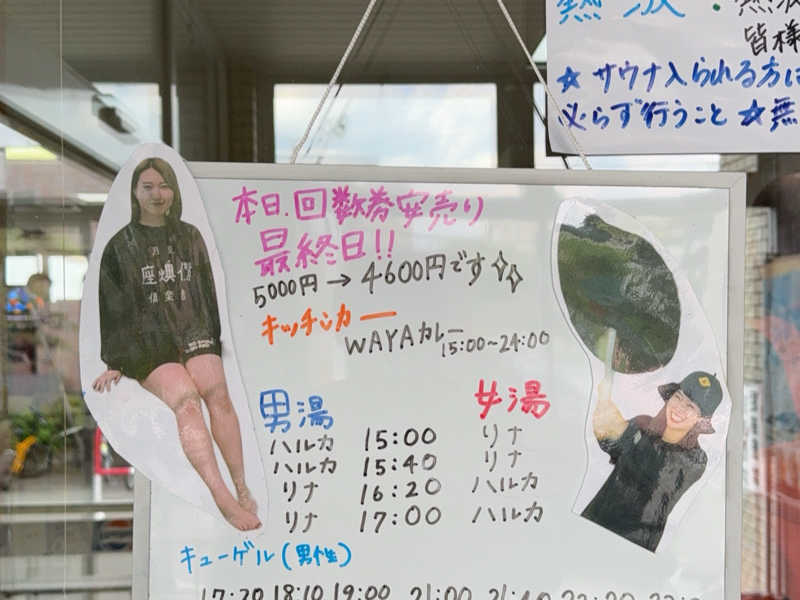 熱波:熱波
皆様
★サウナ入られる方に
必らず行うこと★無
本日.回数券安売り
最終日!!
5000円→4600円です
キッチンカー
WAYAカレー
15:00~24:00
男湯 女湯
ハルカ 15:00 リナ
ハルカ 15:40 リナ
リナ 16:20 ハルカ
リナ 17:00 ハルカ
キューゲル(男性)
17:20 18:10 19:00 21:00